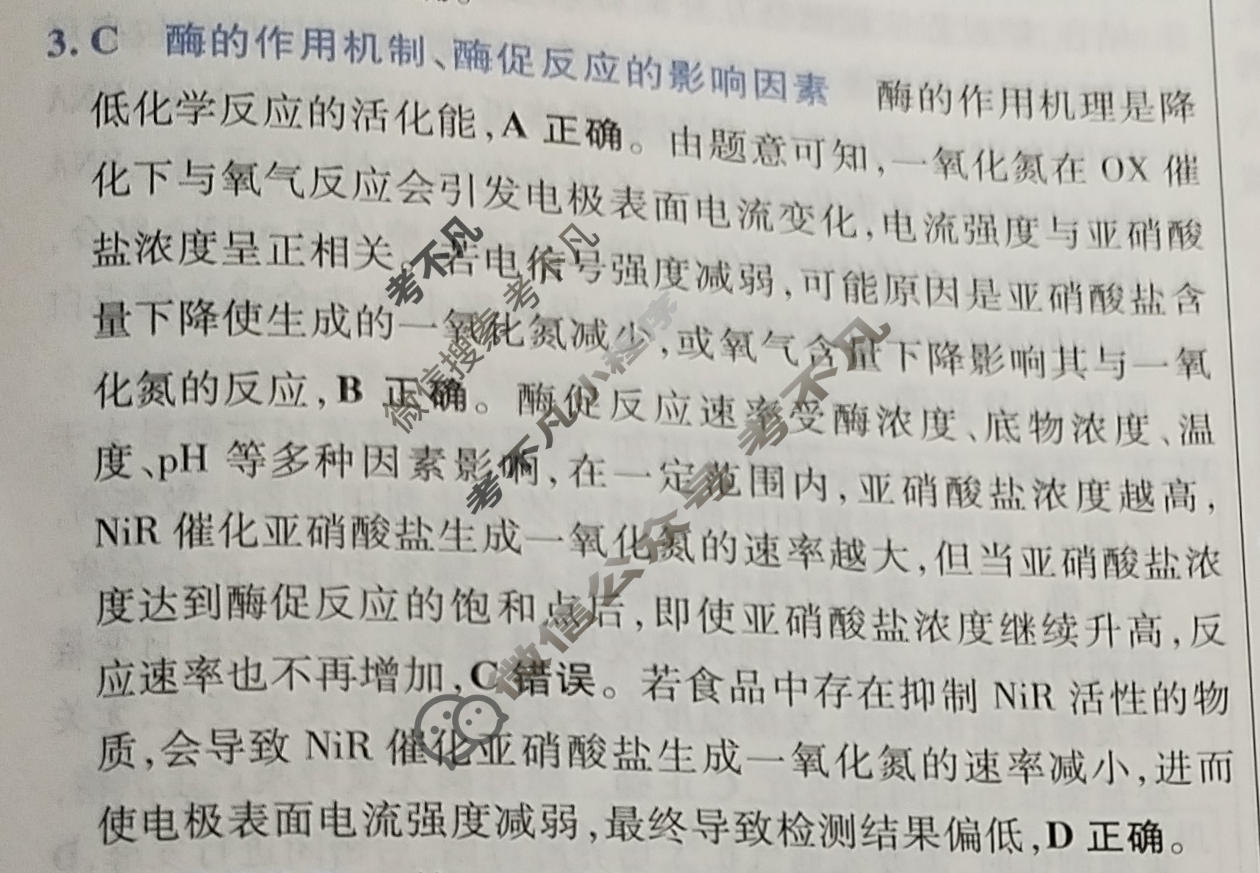 3. C 酶的作用机制、酶促反应的影响因素 酶的作用机理是降
低化学反应的活化能,A 正确。由题意可知,一氧化氮在 OX 催
化下与氧气反应会引发电极表面电流变化,电流强度与亚硝酸
盐浓度呈正相关。若电信号强度减弱,可能原因是亚硝酸盐含
量下降使生成的一氧化氮减少,或氧气含量下降影响其与一氧
化氮的反应,B 正确。酶促反应速率受酶浓度、底物浓度、温
度、pH 等多种因素影响,在一定范围内,亚硝酸盐浓度越高,
NiR 催化亚硝酸盐生成一氧化氮的速率越大,但当亚硝酸盐浓
度达到酶促反应的饱和点后,即使亚硝酸盐浓度继续升高,反
应速率也不再增加,C 错误。若食品中存在抑制 NiR 活性的物
质,会导致 NiR 催化亚硝酸盐生成一氧化氮的速率减小,进而
使电极表面电流强度减弱,最终导致检测结果偏低,D 正确。
考不凡
微信搜索 考不凡
考不凡小程序
微信公众号 考不凡